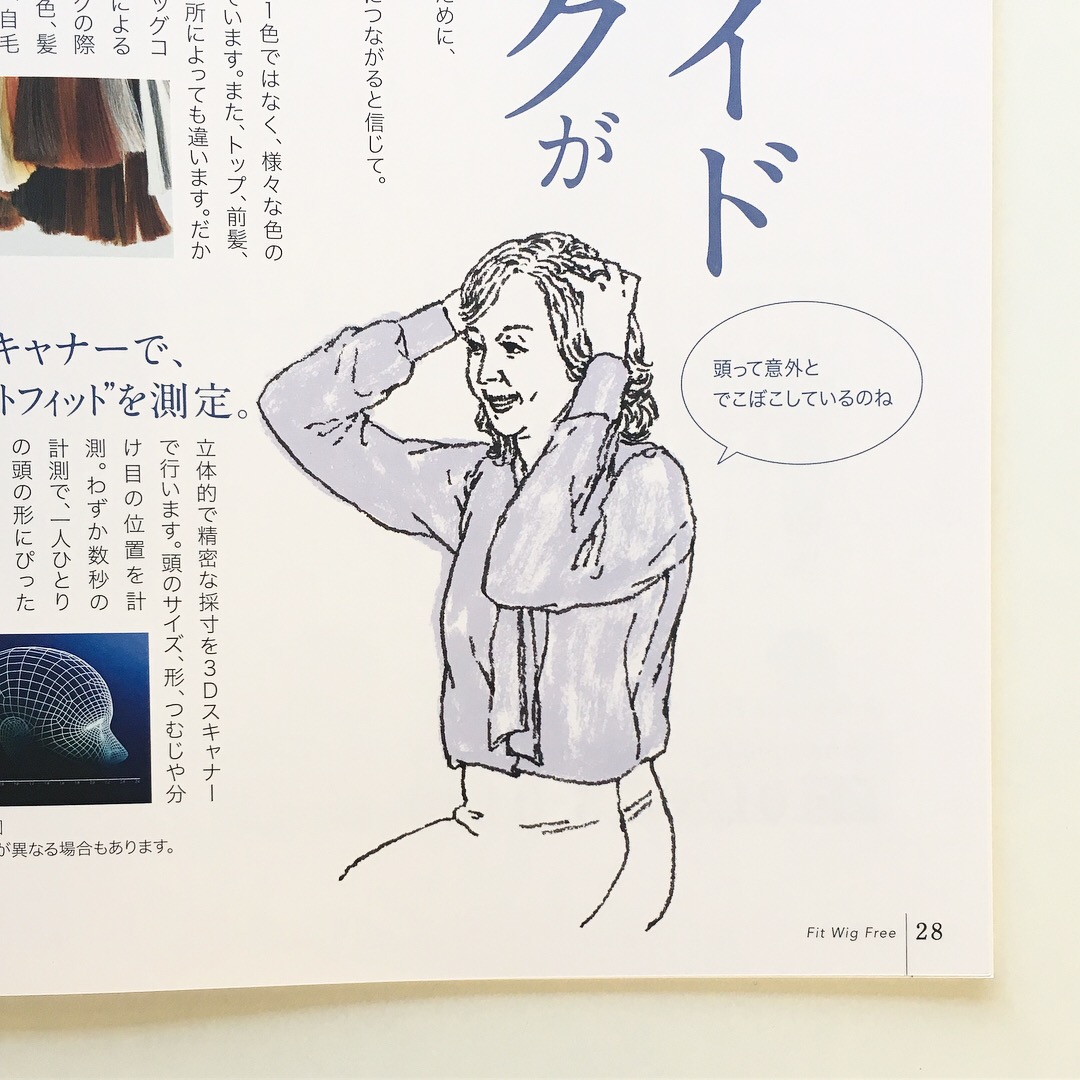 イド
クが
ために、
につながると信じて。
1色ではなく、様々な色の
ています。また、トップ、前髪、
所によっても違います。だか
ッグコ
による
グの際
色、髪
自毛
キャナーで、
トフィット”を測定。
立体的で精密な採寸を3Dスキャナー
で行います。頭のサイズ、形、つむじや分
け目の位置を計
測。わずか数秒の
計測で、一人ひとり
の頭の形にぴった
が異なる場合もあります。
頭って意外と
でこぼこしているのね
Fit Wig Free 28